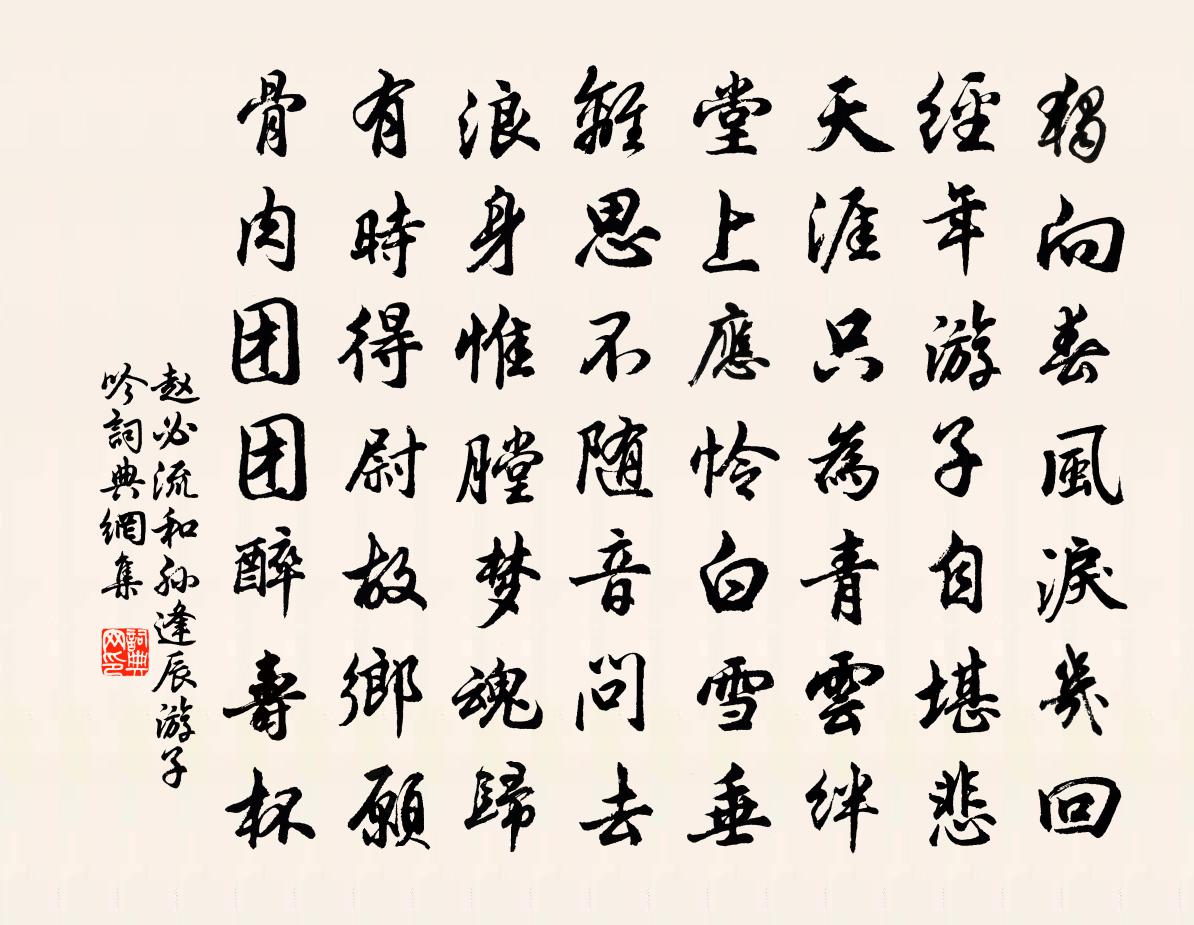 獨向春風淚幾回
經年游子自堪悲
天涯只為青雲絆
堂上應怜白雪垂
離思不随音問去
浪身惟膛梦魂歸
有時得尉故鄉願
骨肉团团醉壽杯
赵必流和孙逢辰游子
吟詞典網集
詞典网印